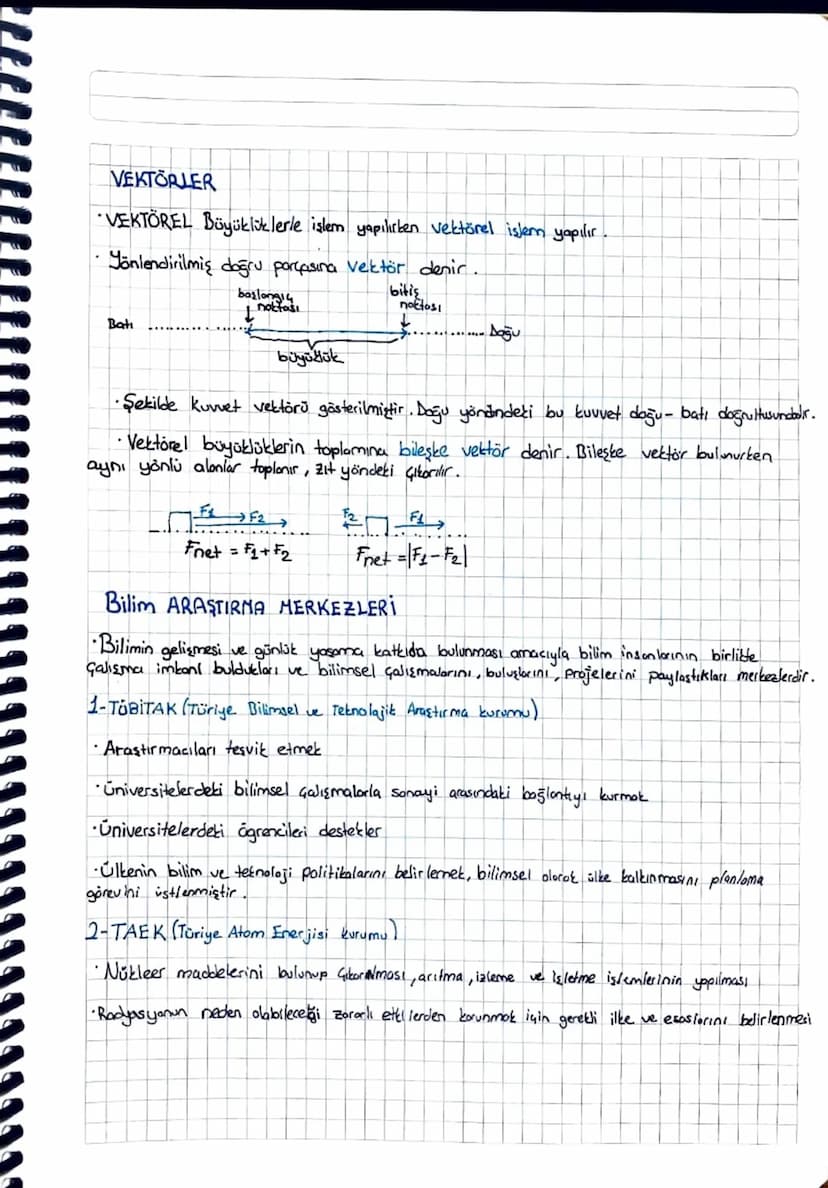 VEKTÖRLER
· VEKTÖREL Büyüklüklerle işlem yapılırken vektörel işlem yapılır.
· Yönlendirilmiş doğru parçasına vektör denir.
başlangıç bitiş
noktası noktası
Batı Doğu
büyüklük
· Şekilde kuvvet vektörü gösterilmiştir. Doğu yönündeki bu kuvvet doğu-batı doğrultusundadır.
· Vektörel büyüklüklerin toplamına bileşke vektör denir. Bileşke vektör bulunurken
aynı yönlü alanlar toplanır, zıt yöndeki çıkarılır.
F1 F2 F2 F1
Fnet = F1+F2 Fnet =|F1-F2|
Bilim ARAŞTIRMA MERKEZLERİ
· Bilimin gelişmesi ve günlük yaşama katkıda bulunması amacıyla bilim insanlarının birlikte
çalışma imkanı buldukları ve bilimsel çalışmalarını, buluşlarını, projelerini paylaştıkları merkezlerdir.
1-TÜBİTAK (Türiye Bilimsel ve Teknolajik Araştırma kurumu)
· Araştırmacıları teşvik etmek
· Üniversitelerdeki bilimsel çalışmalarla sanayi arasındaki bağlantıyı kurmak
· Üniversitelerdeki öğrencileri destekler
· Ülkenin bilim ve teknoloji politikalarını belirlemek, bilimsel olarak ülke kalkınmasını planlama
görevini üstlenmiştir.
2-TAEK (Türiye Atom Enerjisi kurumu)
· Nükleer maddelerini bulunup çıkarılması, arıtma, izleme ve işletme işlemlerinin yapılması
· Radyasyonun neden olabileceği zararlı etkilerden korunmak için gerekli ilke ve esaslarını belirlenmesi